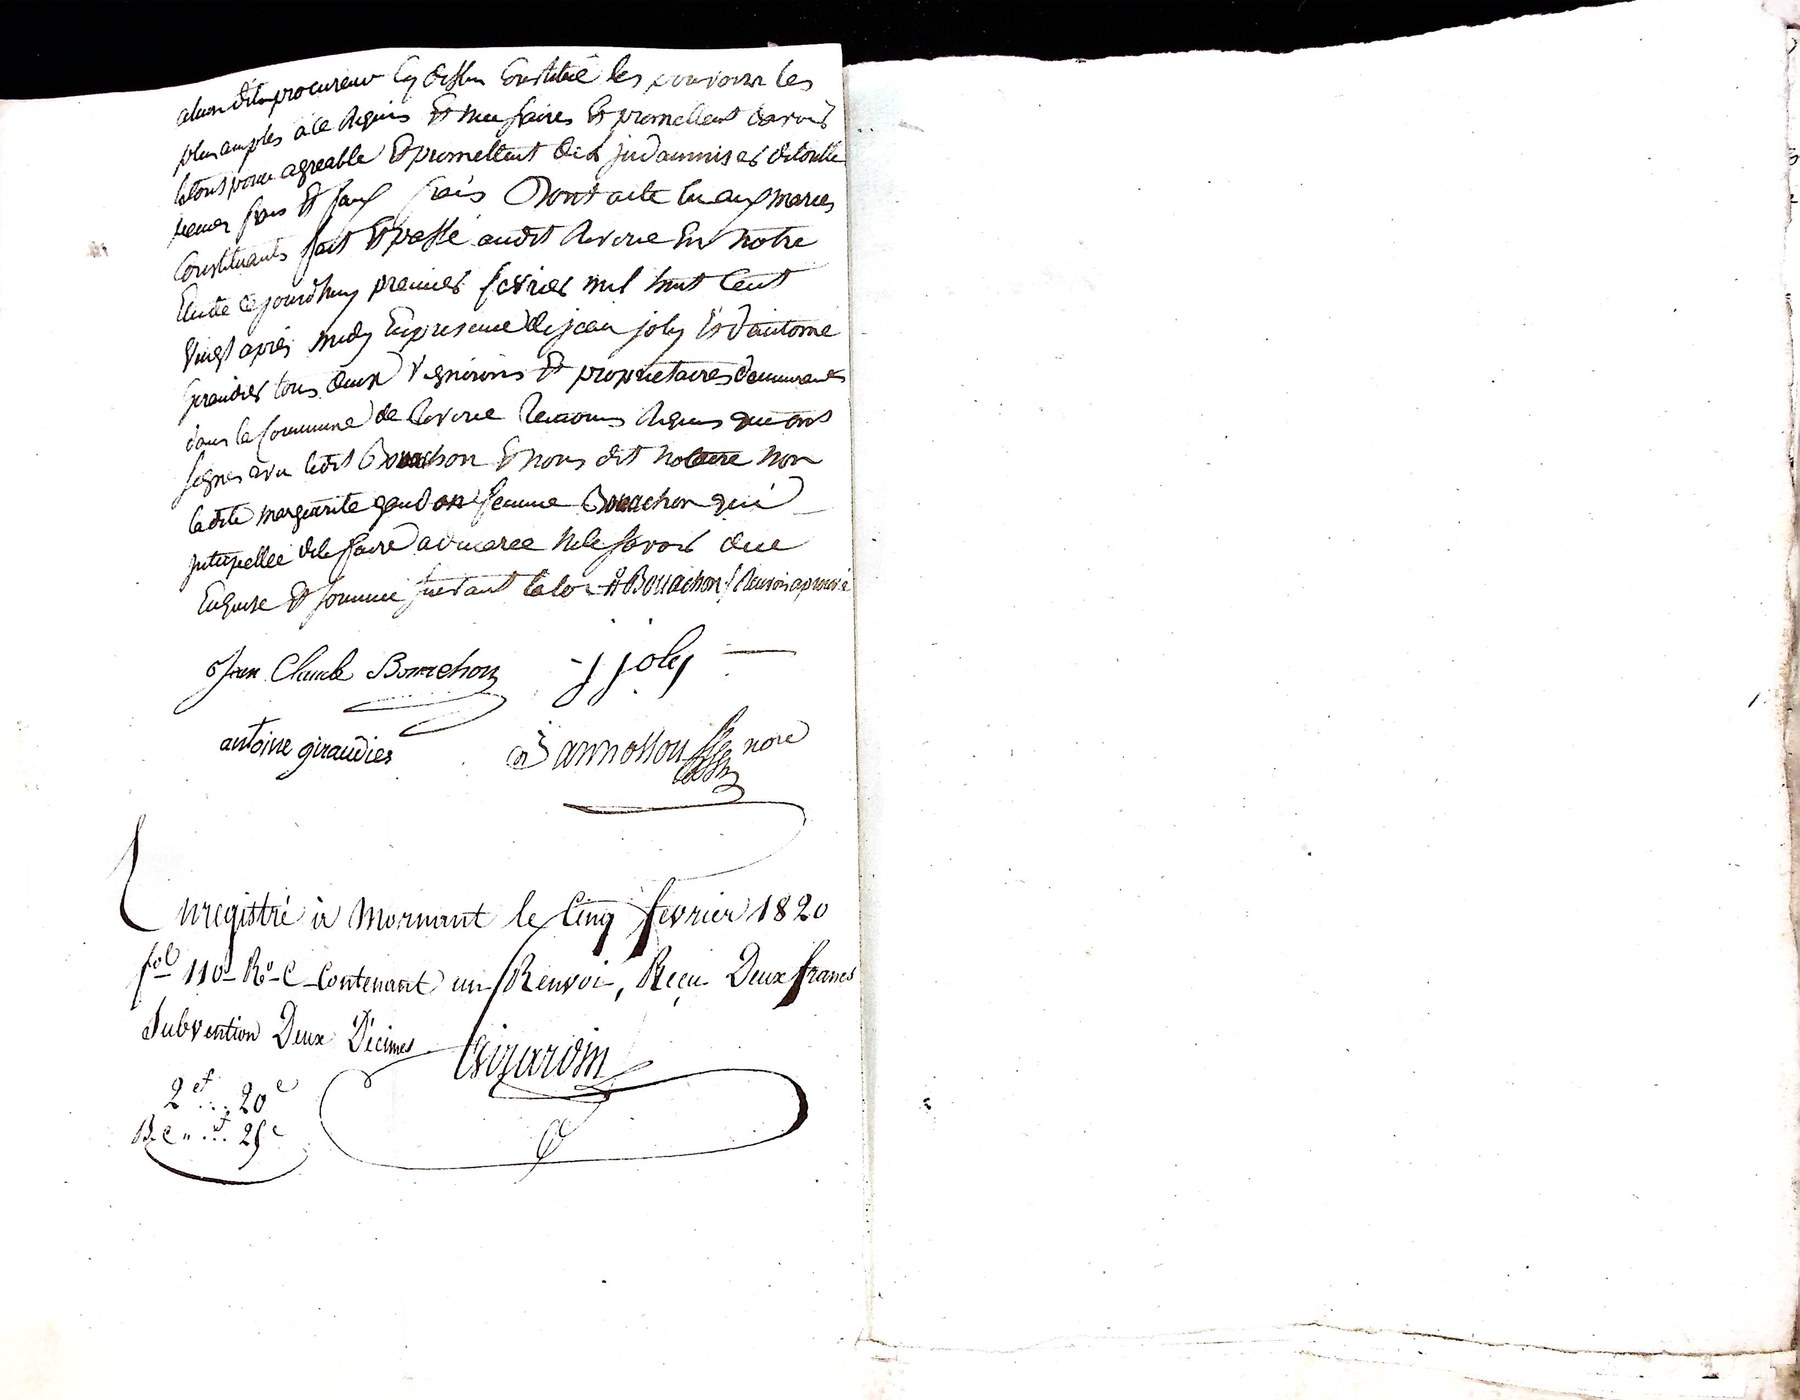 a leurdit procureur cy dessus Constitué les pouvoirs les
plus amples à ce Requis Et necessaires Et promettent davoir
letout pour agreable Et promettent de les indamniser detoutte
frais Et faux frais Dont acte lu aux maries
Constituants fait Et passé audit Riverie En notre
Etude cejourdhuy premier fevrier mil huit Cent
Vingt apres midy En presence de jean joly Et dantoine
giraudier tous deux Vignerons Et proprietaires demeurants
dans la Commune de Riverie Temoins Requis qui ont
signes avec ledit Bonachon Et nous dit notaire non
ladite marguerite gaudon femme Bonachon qui
interpellée dele faire a declaree nele savoir dece
Enquise Et sommée suivant laloi # Bonachon / Renvoi aprouvé
Jean Claude Bonnechon j joly
antoine giraudier Jannosson nore
Enregistré à Mornant le Cinq fevrier 1820
fol 110 Ro C Contenant un Renvoi, Reçu Deux francs
Subvention Deux Décimes Girardin
2f .... 20c
25c